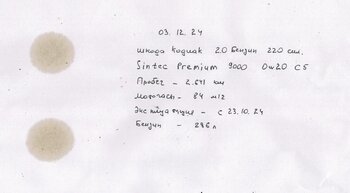 03.12.24
шкода Kodiak 2.0 Бензин 220 сил.
Sintec Premium 9000 0w20 C5
Пробег - 2.641 км
Моточасы - 84 м/ч
Эксплуатация - с 23.10.24
Бензин - 286 л